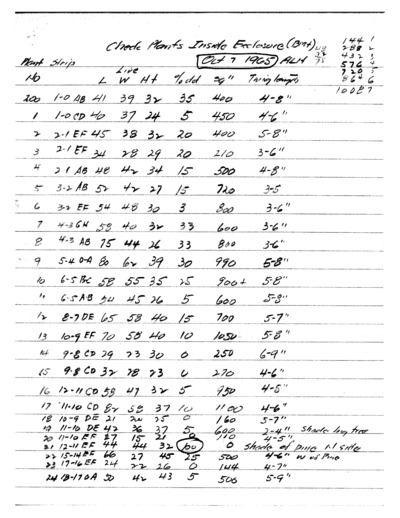 Check Plants Inside Exclosure (Bitt)
Oct 7 1965 ALH
144 1
288 2
432 3
576 4
720 5
864 6
1008 7
Plant Strip Live
No L W Ht % dd sq" Twig length
200 1-0 AB 41 39 32 35 400 4-8"
1 1-0 CD 40 37 24 5 450 4-6"
2 2-1 EF 45 38 32 20 400 5-8"
3 2-1 EF 34 28 29 20 210 3-6"
4 2-1 AB 48 42 34 15 500 4-8"
5 3-2 AB 52 42 27 15 720 3-5
6 3-2 EF 54 48 30 3 800 3-6"
7 4-3 GH 58 40 32 33 600 3-6"
8 4-3 AB 75 44 26 33 800 3-6"
9 5-4 0-A 80 62 39 30 990 5-8"
10 6-5 BC 58 55 35 25 900+ 5-8"
11 6-5 AB 54 45 26 5 600 5-8"
12 8-7 DE 65 58 40 15 700 5-7"
13 10-9 EF 70 58 40 10 1050 5-8"
14 9-8 CD 29 23 30 0 250 6-9"
15 9-8 CD 32 28 23 0 270 4-6"
16 12-11 CD 58 47 32 5 950 4-5"
17 11-10 CD 82 58 37 10 1100 4-6"
18 10-9 DE 21 20 25 0 160 5-7"
19 11-10 DE 42 36 37 5 600 2-4" shade
20 11-10 EF 27 15 21 0 110 4-5"
21 12-11 EF 44 44 32 0 shade of pine N side
22 15-14 EF 60 27 45 25 500 4-6" w of Pine
23 17-16 EF 24 22 26 0 144 4-7"
24 18-17 0A 50 42 43 5 500 5-9"